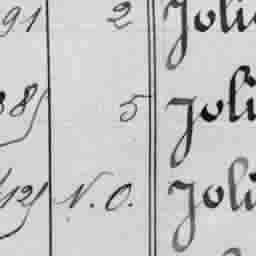 91 2 Joli
88 5 Joli
12 N. O. Joli